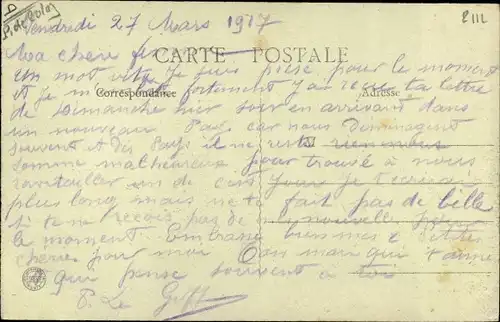 Vendredi 27 Mars 1917
P. de Colas
2111
CARTE POSTALE
Correspondance
Adresse
Ma chere
un mot vite Je suis presé pour le moment
et Je fortement J'ai reçu ta lettre
de Dimanche hier soir en arrivant dans
un nouveau Pais, car nous Demmenagent
souvent et Dès Pays il ne reste rien nous
somme malheureux pour trouvé a nous
ravitailler un de ces Jours Je t'ecrirai
plus long mais ne te fait pas de bille
si tu ne recois pas de nouvelle pour
le moment. Embrasse bien mes petites
cheries pour moi Ton mari qui t'aime
qui pense souvent a toi
P. Le Goff